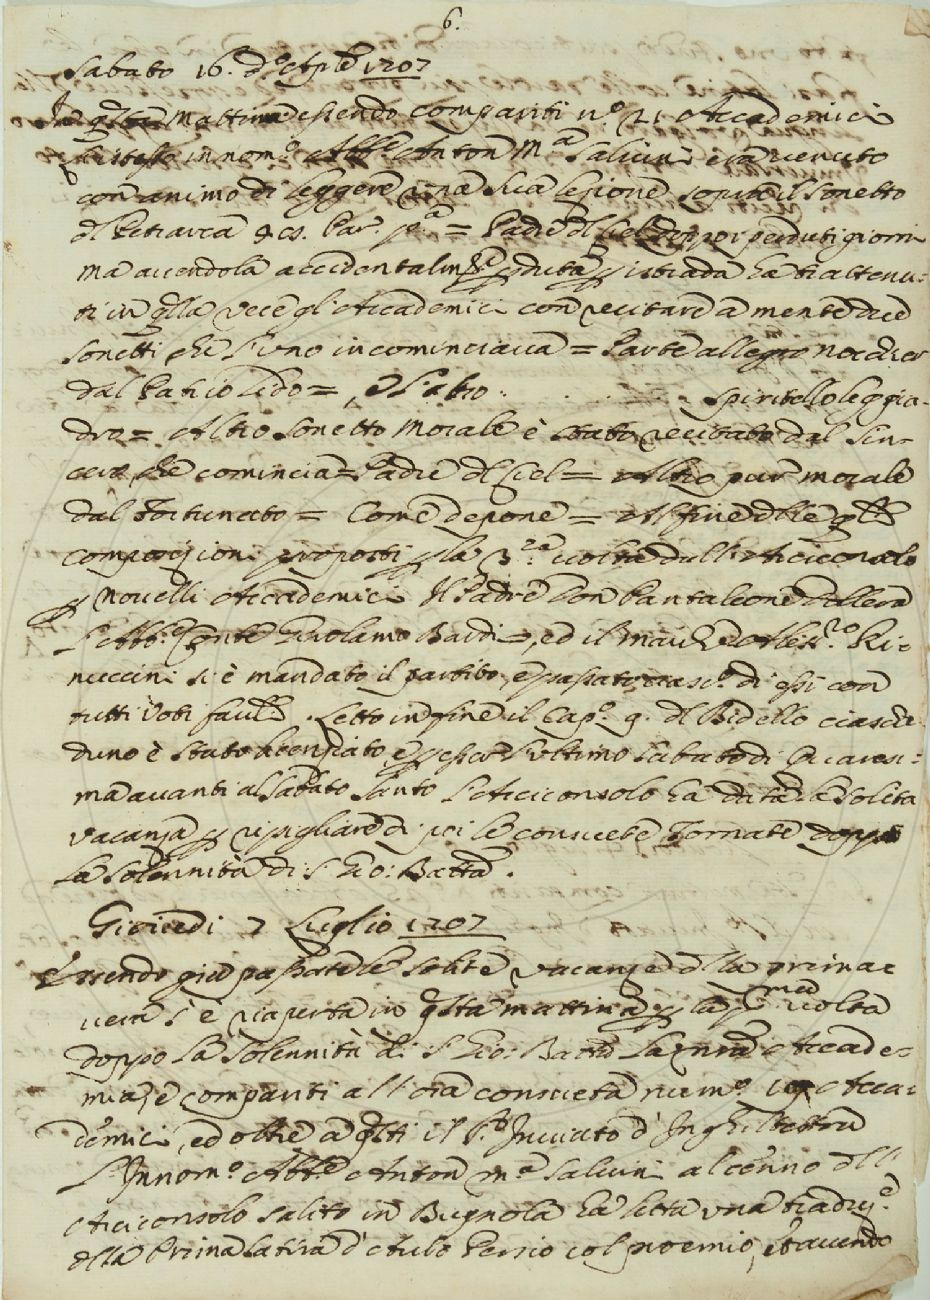 6.
Sabato 16. d'Aple 1707
In qsta Mattina essendo compariti n.° 21 Accademici
l'istesso innom.° Abb.e Anton M.a Salvini era venuto
con animo di leggere una sua lezione sopra il sonetto
dl Petrarca 9cs. Par. p.a = Padre dl Ciel dopo i perduti giorni
ma avendola accidentalm.te pduta p istrada ha trattenu-
ti in qlla vece gl'Accademici con recitare a mente due
sonetti che l'uno incominciava = Parte allegro Nocchier
dal Patrio Lido =, e l'altro . . . . . spiritello leggia-
dro = Altro sonetto Morale è stato recitato dal Sin-
cero che comincia = Padre dl Ciel = Altro pur morale
dal Fortunato = Come depone = Al fine dlle qli
composizioni proposti p la 3.za volta dall'Arciconsolo
p Novelli Accademici Il Padre Don Pantaleone Dollera
l'Abb.e Conte Girolamo Bardi =, ed il March. Aless.ro Ri-
nuccini si è mandato il partito, e passato ciasc.° di essi con
tutti Voti fav.li. Letto in fine il Cap.° 9. dl Bidello ciasche-
duno è stato licenziato e p esser l'ultimo sabato di Quaresi-
ma avanti al Sabato Santo l'Arciconsolo ha data la solita
vacanza p ripigliare di poi le consuete Tornate doppo
la solennità di S. Gio: Batta.
Giovedi 7 Luglio 1707
Essendo già passate le solite vacanze dlla prima-
vera s'è riaperta in qsta mattina p la p.ma volta
doppo la solennità di S. Gio: Batta la nra Accade-
mia, e comparsi all'ora consueta num.° Acca-
demici, ed oltre a qsti il S.r Inviato d'Inghilterra
L'Innom.° Abb.e Anton M.a Salvini al cenno dll'
Arciconsolo salito in Bugnola ha letta una traduz.e
dlla Prima Satira d'Aulo Persio col proemio, et avendo